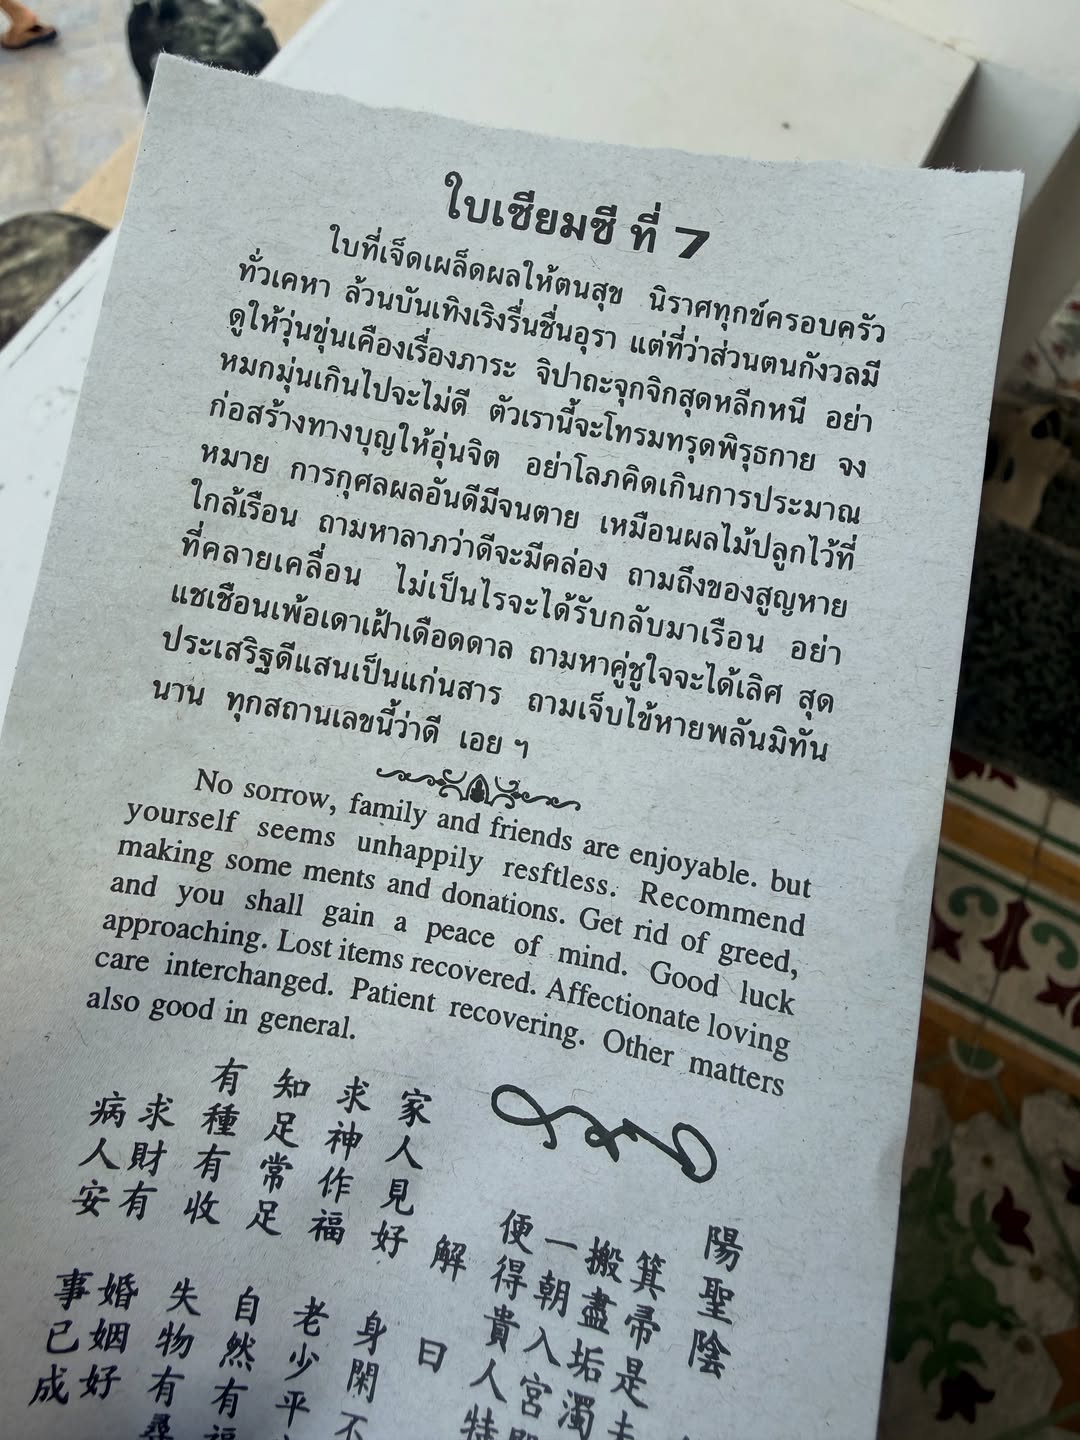 ใบเซียมซี ที่ 7
ใบที่เจ็ดเผล็ดผลให้ตนสุข นิราศทุกข์ครอบครัว
ทั่วเคหา ล้วนบันเทิงเริงรื่นชื่นอุรา แต่ที่ว่าส่วนตนกังวลมี
ดูให้วุ่นขุ่นเคืองเรื่องภาระ จิปาถะจุกจิกสุดหลีกหนี อย่า
หมกมุ่นเกินไปจะไม่ดี ตัวเรานี้จะโทรมทรุดพิรุธกาย จง
ก่อสร้างทางบุญให้อุ่นจิต อย่าโลภคิดเกินการประมาณ
หมาย การกุศลผลอันดีมีจนตาย เหมือนผลไม้ปลูกไว้ที่
ใกล้เรือน ถามหาลาภว่าดีจะมีคล่อง ถามถึงของสูญหาย
ที่คลายเคลื่อน ไม่เป็นไรจะได้รับกลับมาเรือน อย่า
แชเชือนเพ้อเดาเฝ้าเดือดดาล ถามหาคู่ชูใจจะได้เลิศ สุด
ประเสริฐดีแสนเป็นแก่นสาร ถามเจ็บไข้หายพลันมิทัน
นาน ทุกสถานเลขนี้ว่าดี เอย ฯ
No sorrow, family and friends are enjoyable. but
yourself seems unhappily resftless. Recommend
making some ments and donations. Get rid of greed,
and you shall gain a peace of mind. Good luck
approaching. Lost items recovered. Affectionate loving
care interchanged. Patient recovering. Other matters
also good in general.
陽聖陰
箕帚是
搬盡垢濁
一朝入宮
便得貴人特
解曰
家人見好 身閑不
求神作福 老少平
知足常足 自然有福
有種有收 失物有尋
求財有 婚姻好
病人安 事已成